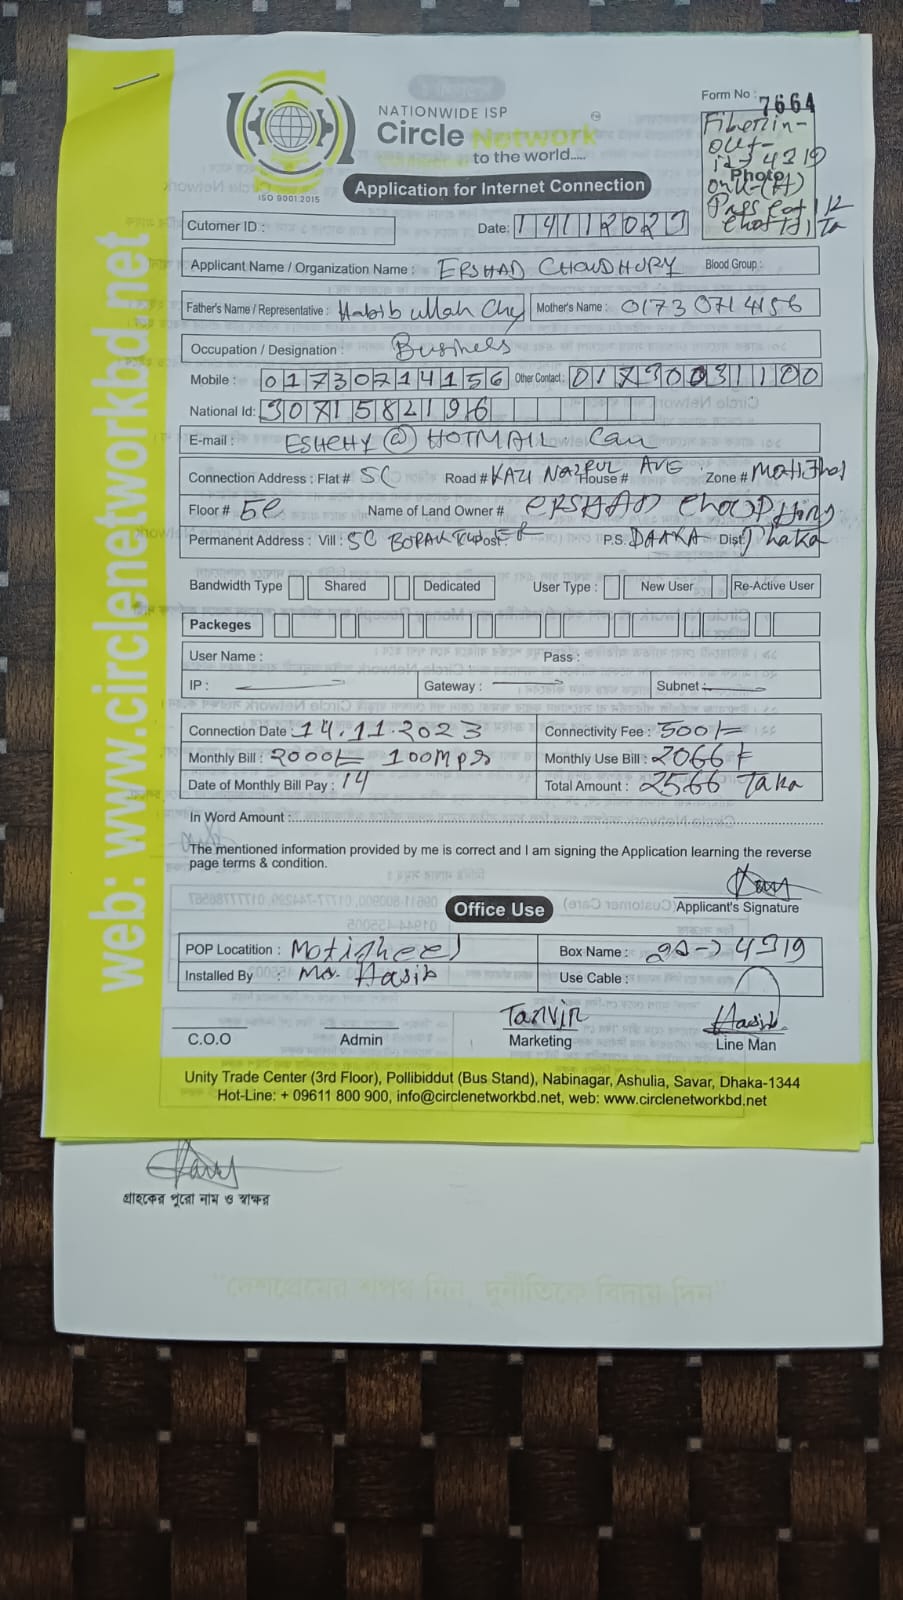 web: www.circlenetworkbd.net
NATIONWIDE ISP
Circle Network
to the world.....
ISO 9001:2015
Application for Internet Connection
Form No : 7664
id → 4319
Photo
Onu-(A)
Cutomer ID :
Date: 14112023
Applicant Name / Organization Name : ERSHAD CHOUDHURY Blood Group :
Father's Name / Representative : Habib ullah Chy Mother's Name : 01730714156
Occupation / Designation : Business
Mobile : 01730714156 Other Contact :
National Id: 3071582196
E-mail : ESHCHY @ HOTMAIL
Connection Address : Flat # 5C Road # KAZI NAZRUL AVE House # Zone #
Floor # Name of Land Owner # ERSHAD
Permanent Address : Vill : 5C Post : P.S. DHAKA Dist. Dhaka
Bandwidth Type Shared Dedicated User Type : New User Re-Active User
Packeges
User Name : Pass :
IP : Gateway : Subnet :
Connection Date : 14.11.2023 Connectivity Fee : 500/=
Monthly Bill : 2000/= 100Mps Monthly Use Bill : 2066
Date of Monthly Bill Pay : 14 Total Amount : 2566 Taka
In Word Amount :
The mentioned information provided by me is correct and I am signing the Application learning the reverse
page terms & condition.
Applicant's Signature
Office Use
POP Locatition : Motigheel Box Name : → 4319
Installed By : Mr. Hasib Use Cable :
Tanvir Hasib
C.O.O Admin Marketing Line Man
Unity Trade Center (3rd Floor), Pollibiddut (Bus Stand), Nabinagar, Ashulia, Savar, Dhaka-1344
Hot-Line: + 09611 800 900, info@circlenetworkbd.net, web: www.circlenetworkbd.net
গ্রাহকের পুরো নাম ও স্বাক্ষর
"দেশপ্রেমের শপথ নিন, দুর্নীতিকে বিদায় দিন"